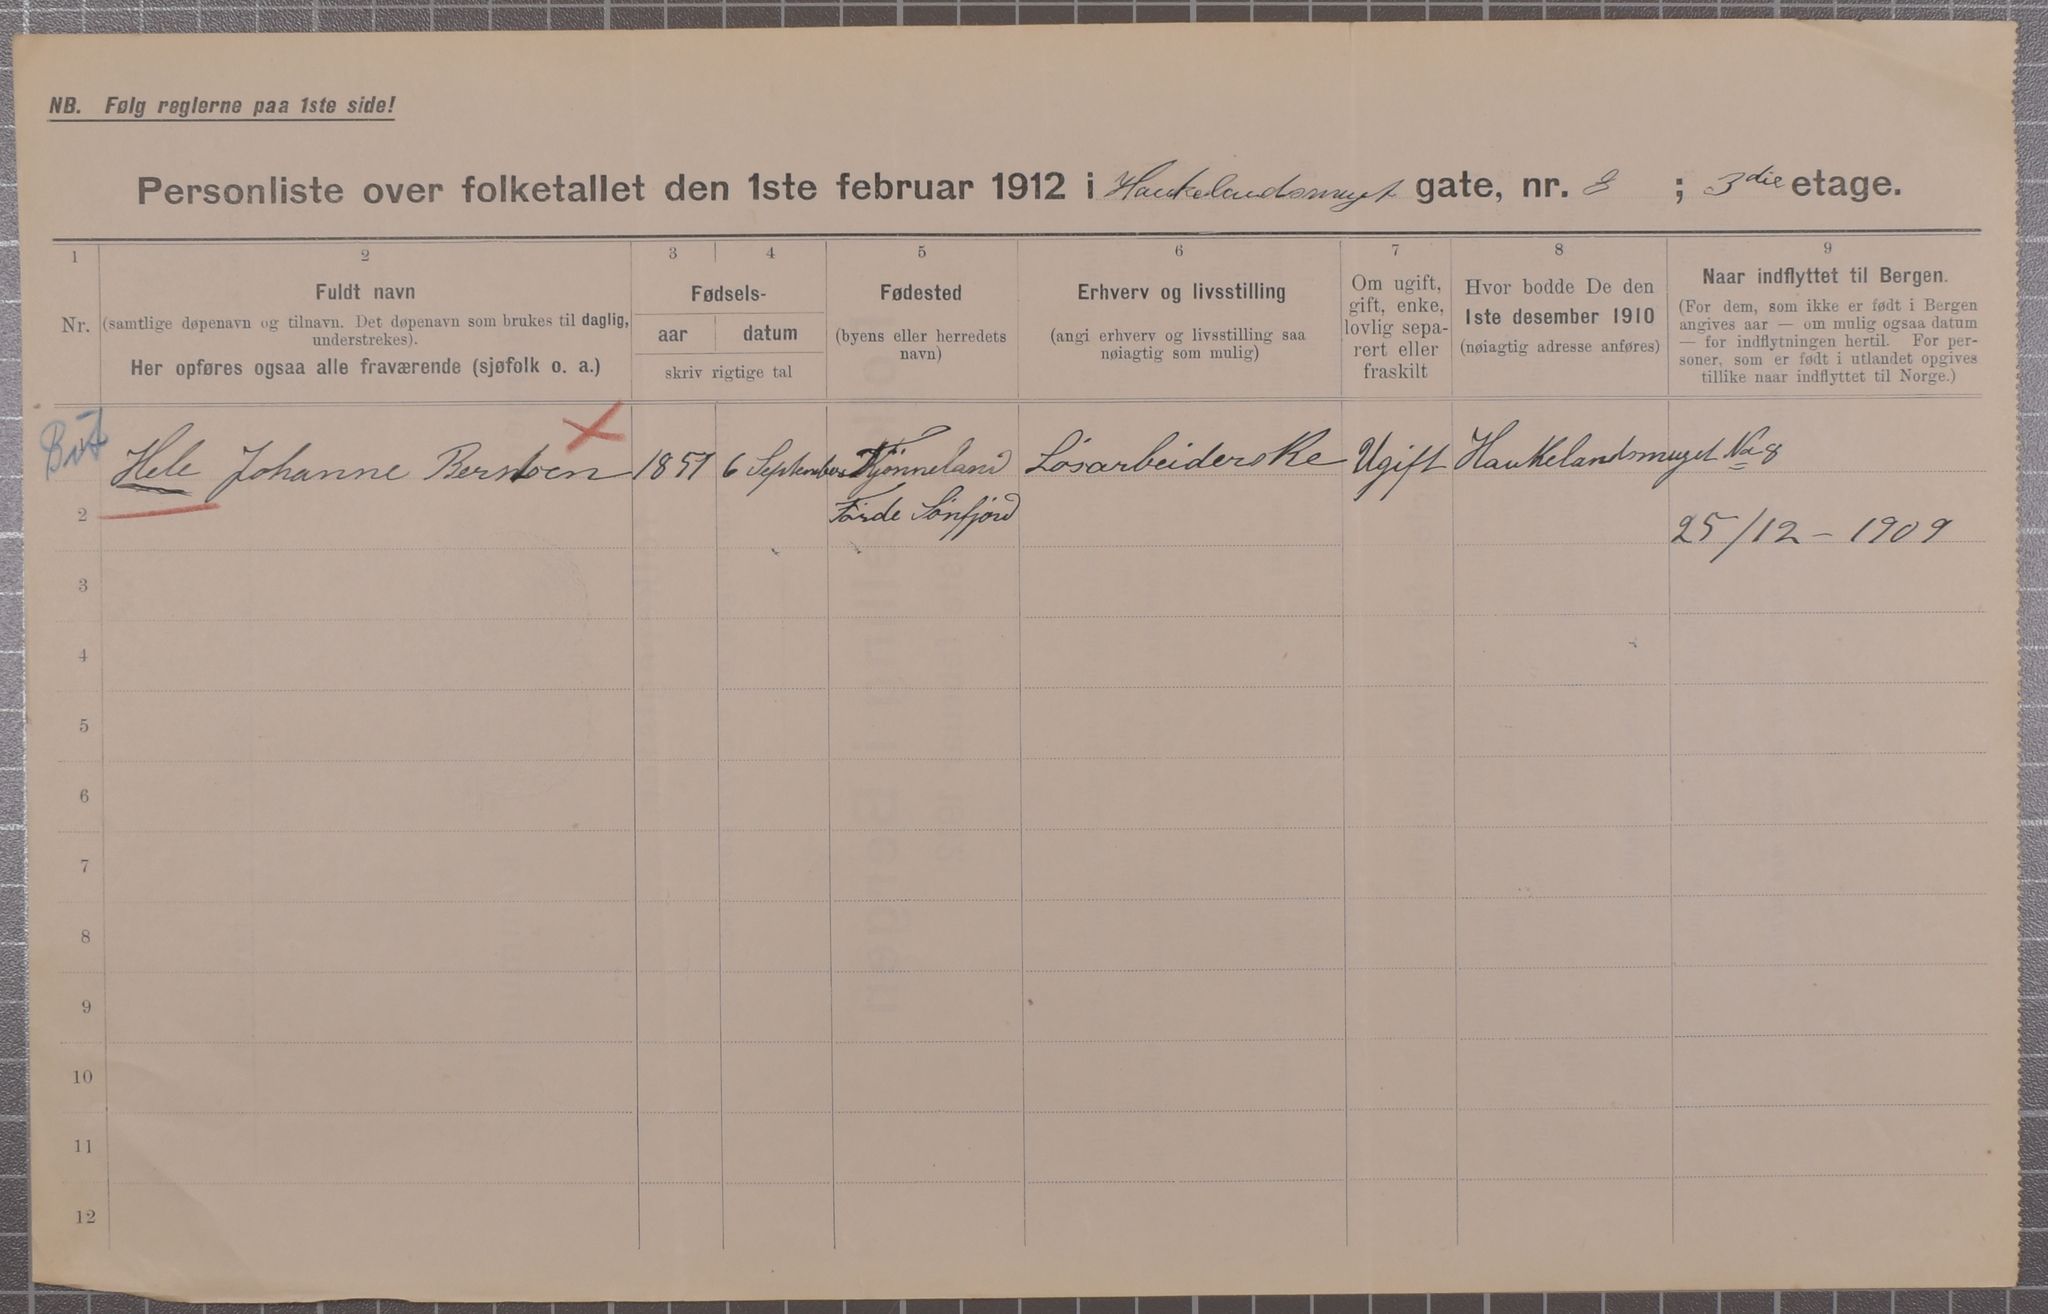 NB. Følg reglerne paa 1ste side!
Personliste over folketallet den 1ste februar 1912 i Haukelandsmuget gate, nr. 8 ; 3die etage.
1 2 3 4 5 6 7 8 9
Nr.
Fuldt navn
(samtlige døpenavn og tilnavn. Det døpenavn som brukes til daglig,
understrekes).
Her opføres ogsaa alle fraværende (sjøfolk o. a.)
Fødsels-
aar datum
skriv rigtige tal
Fødested
(byens eller herredets
navn)
Erhverv og livsstilling
(angi erhverv og livsstilling saa
nøiagtig som mulig)
Om ugift,
gift, enke,
lovlig sepa-
rert eller
fraskilt
Hvor bodde De den
1ste desember 1910
(nøiagtig adresse anføres)
Naar indflyttet til Bergen.
(For dem, som ikke er født i Bergen
angives aar — om mulig ogsaa datum
— for indflytningen hertil. For per-
soner, som er født i utlandet opgives
tillike naar indflyttet til Norge.)
Hele Johanne 1851 6 September Tjønneland Løsarbeiderske Ugift Haukelandsmuget No 8
2 Førde Sönfjörd 25/12 – 1909
3
4
5
6
7
8
9
10
11
12